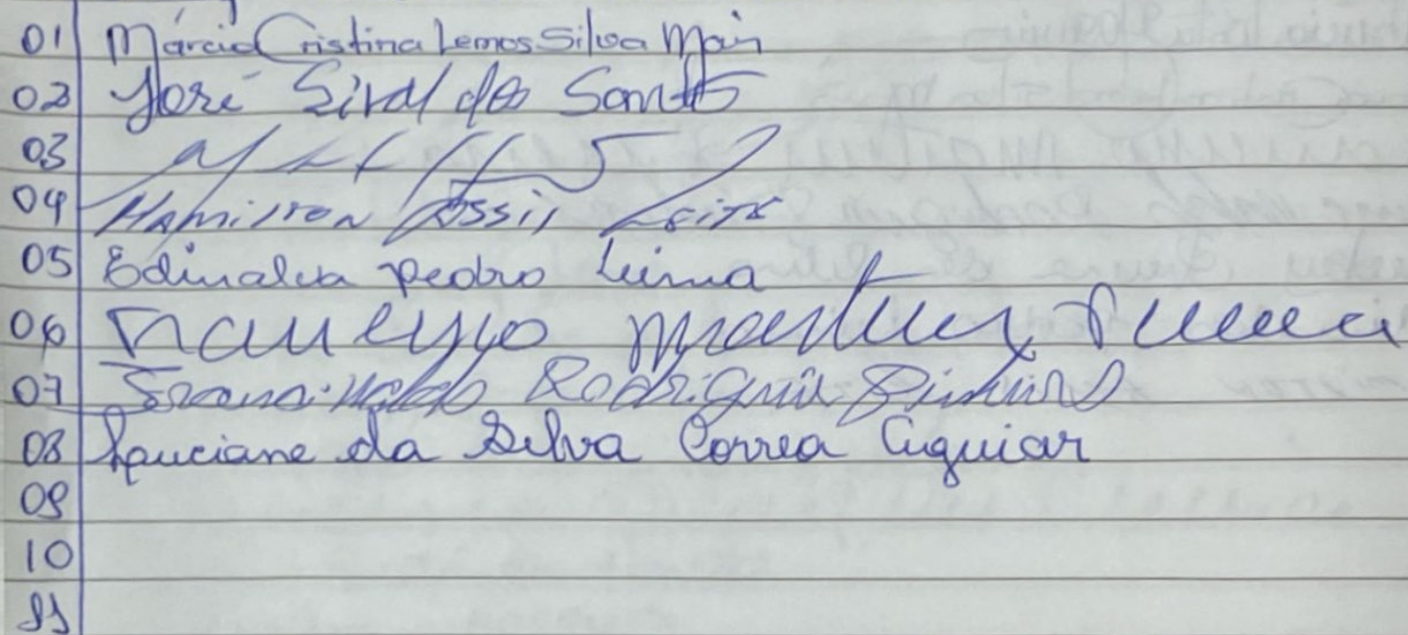 01 Márcia Cristina Lemos Silva Mais
02 José Sival dos Santos
03
04 Hamilton Assis Leite
05 Edinalva Pedro Lima
06 Martins
07 Rodrigues Pinheiro
08 Lauciane da Silva Correa Aguiar
09
10
11